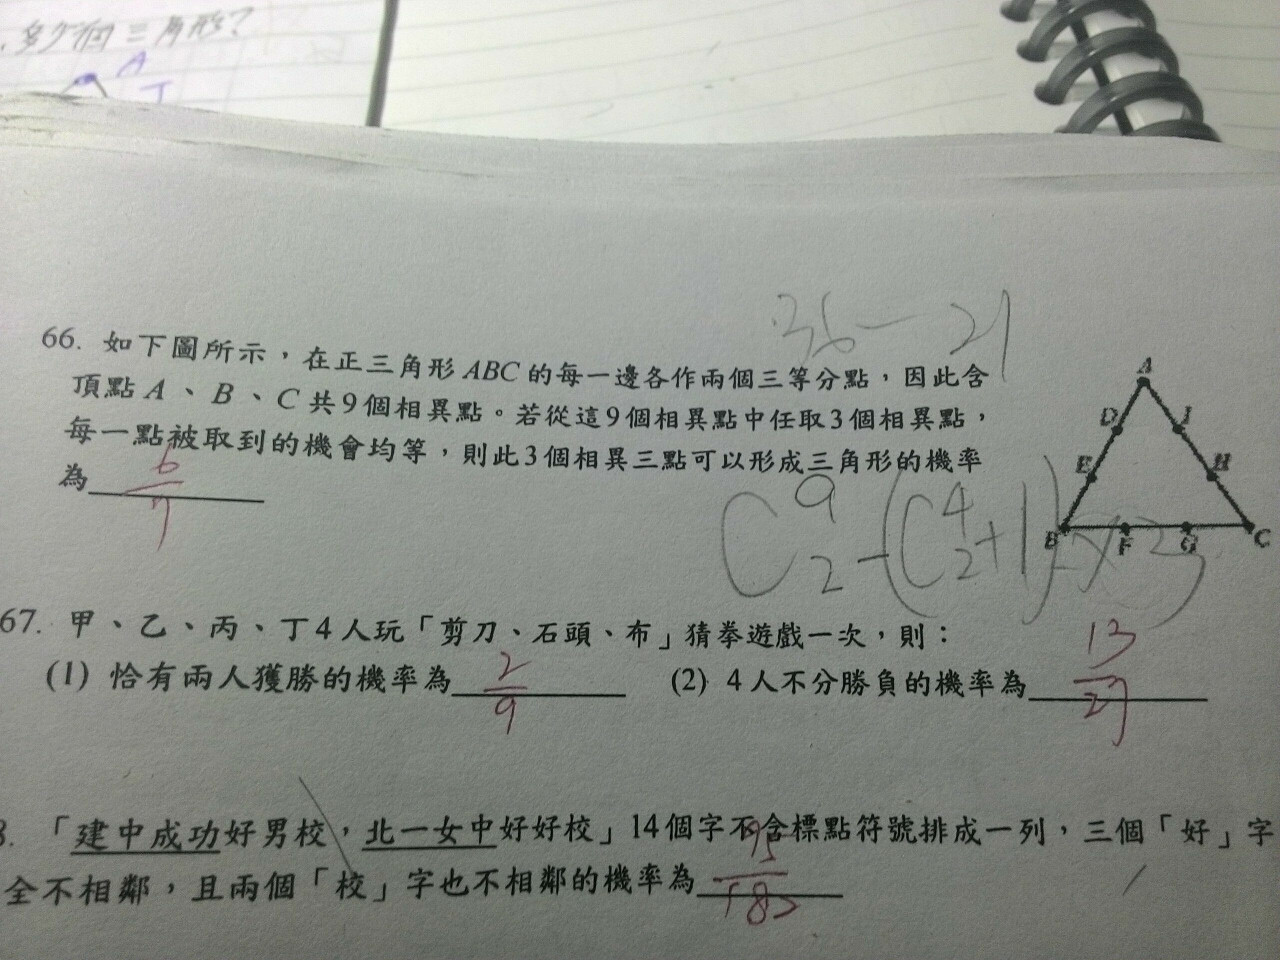 .多少個三角形?
A
I
36-21
66. 如下圖所示，在正三角形ABC的每一邊各作兩個三等分點，因此含
頂點A、B、C共9個相異點。若從這9個相異點中任取3個相異點，
每一點被取到的機會均等，則此3個相異三點可以形成三角形的機率
為 6/7
A
D
I
E
H
B
F
G
C
C⁹₂-(C⁴₂+1)×3
67. 甲、乙、丙、丁4人玩「剪刀、石頭、布」猜拳遊戲一次，則：
(1) 恰有兩人獲勝的機率為 2/9 (2) 4人不分勝負的機率為 13/27
8. 「建中成功好男校，北一女中好好校」14個字不含標點符號排成一列，三個「好」字
全不相鄰，且兩個「校」字也不相鄰的機率為 95/182